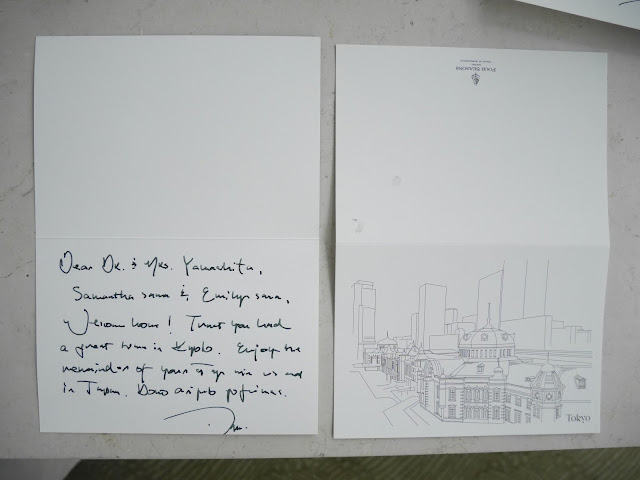 Dear Dr. & Mrs. Yamashita,
Samantha sama & Emily sama,
Welcome home! Trust you had
a great time in Kyoto. Enjoy the
remainder of your trip with us and
in Japan.
FOUR SEASONS
Tokyo